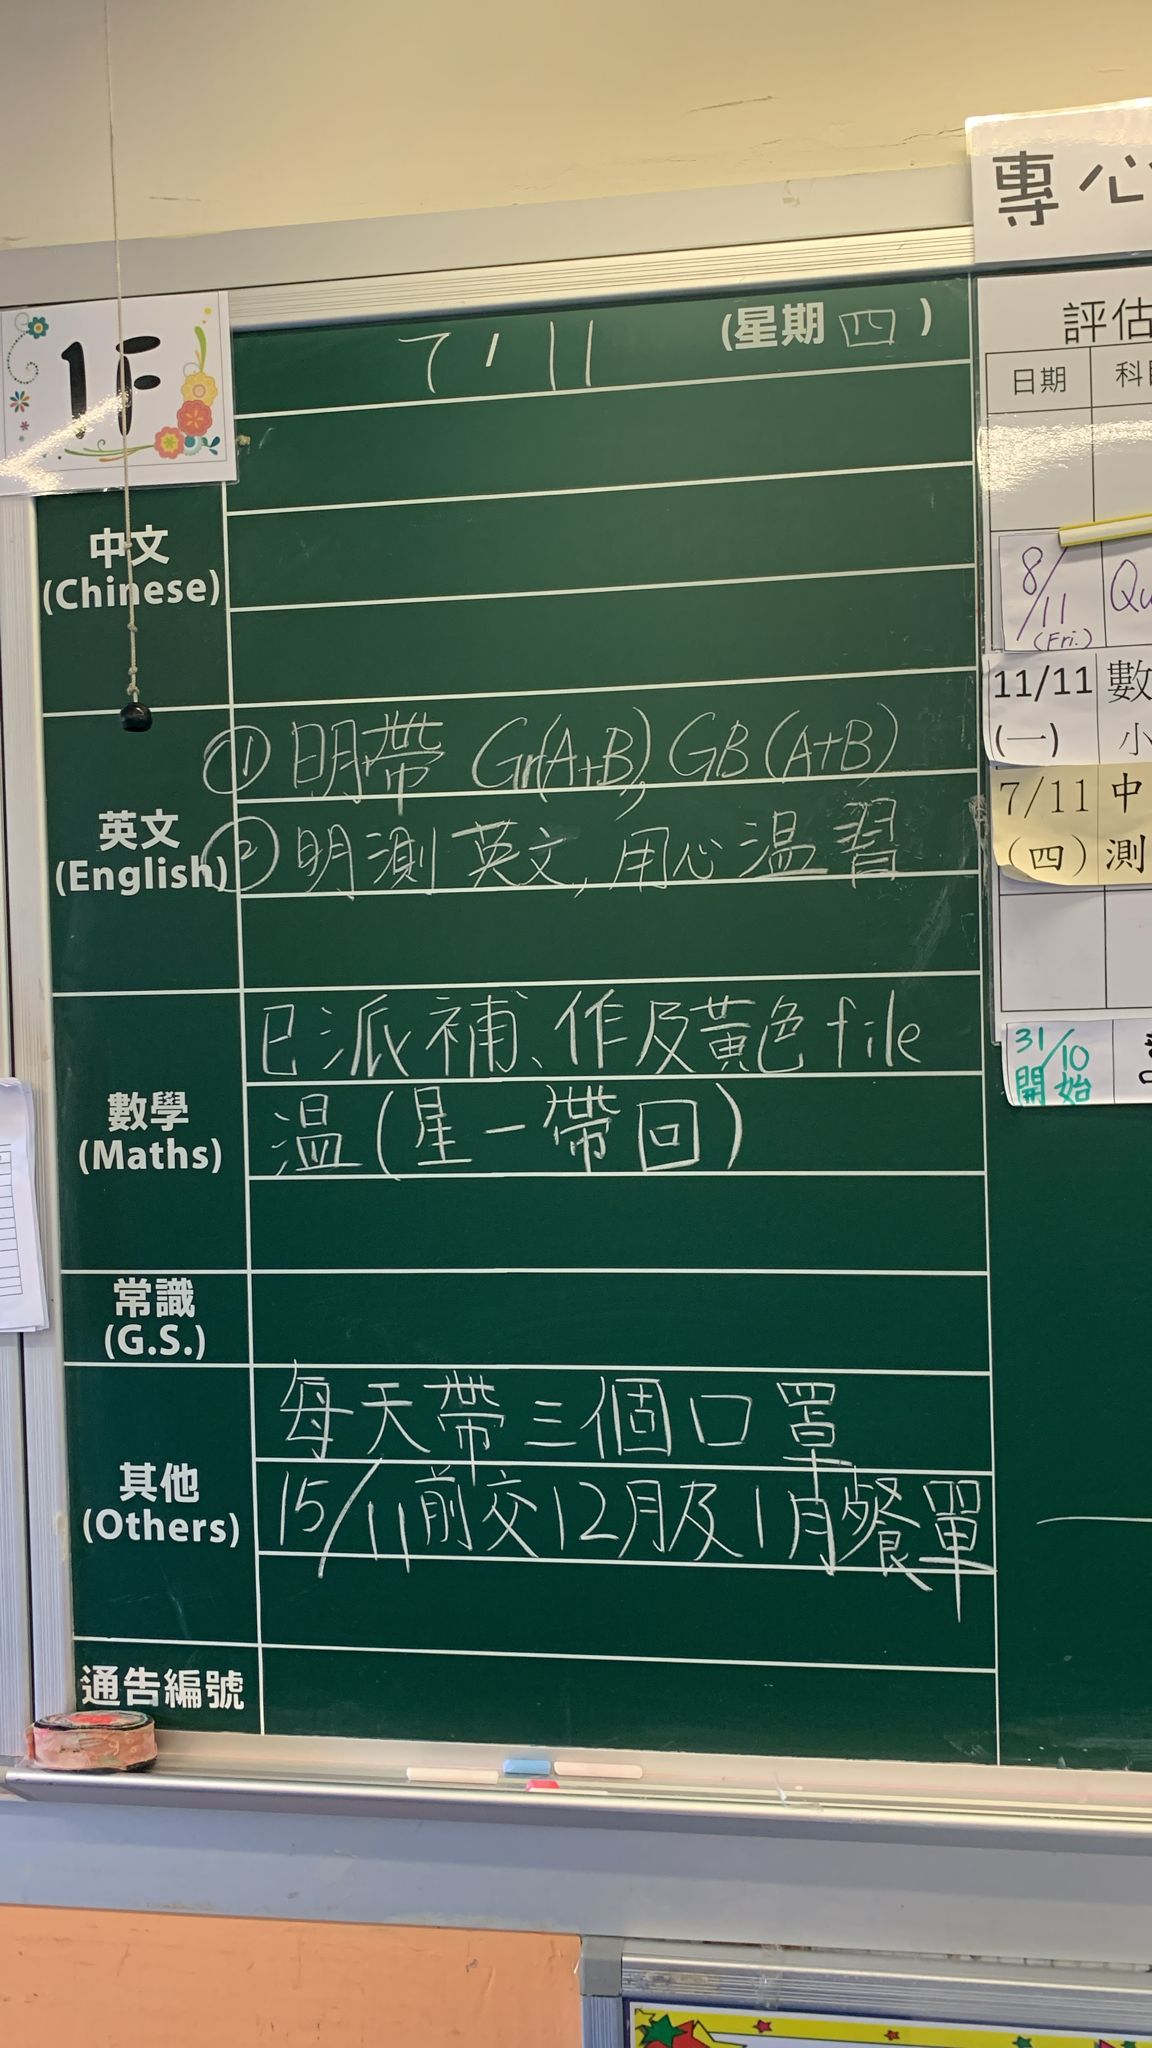 專心
1F
7/11
(星期四)
中文
(Chinese)
英文
(English)
① 明帶 Gr(A+B), GB(A+B)
② 明測英文,用心溫習
數學
(Maths)
已派補、作及黃色file
溫(星一帶回)
常識
(G.S.)
其他
(Others)
每天帶三個口罩
15/11前交12月及1月餐單
通告編號
評估
日期
科
8/11
(Fri.)
Qu
11/11
(一)
數
小
7/11
(四)
中
測
31/10
開始